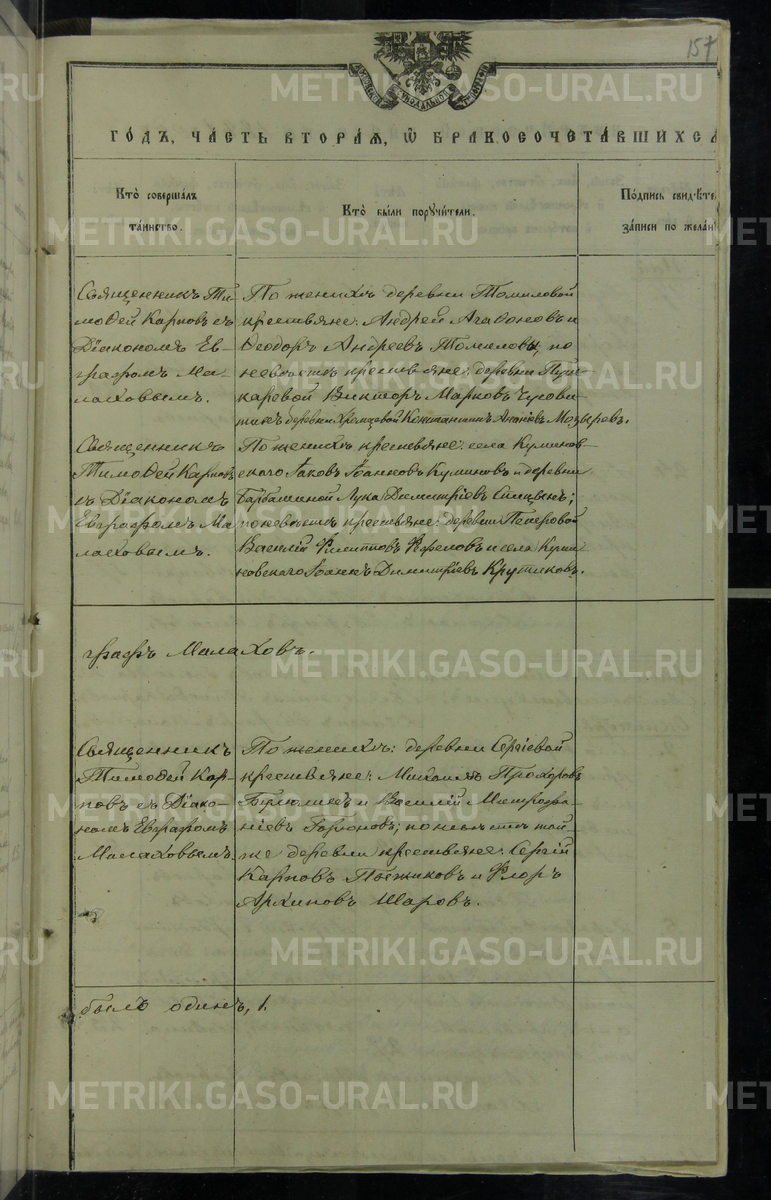 157
ГО́ДЪ, ЧА́СТЬ ВТОРА́Я, Ѡ БРАКОСОЧЕТА́ВШИХСѦ
Кто̀ соверша́лъ
та́инство.
Кто̀ бы́ли порꙋчи́тели.
По́дпись свидѣ́те
за́писи по жела́н
Священникъ Ти-
моѳей Карповъ съ
Діакономъ Ев-
графомъ Ма-
лаховымъ.
По женихѣ деревни Томиловой
крестьяне: Андрей Агаѳоновъ и
Ѳеодоръ Андреевъ Томиловы, по
невѣстѣ крестьяне: деревни Пуш-
каревой Викторъ Марковъ
деревни Константинъ Мозыревъ.
Священникъ
Тимоѳей Карповъ
съ Діакономъ
Евграфомъ Ма
лаховымъ.
По женихѣ крестьяне: села Куминов-
скаго Іаковъ Іоанновъ Куминовъ и деревни
Барбашиной Лука Димитріевъ Силинъ;
по невѣстѣ крестьяне: деревни
Василій Филипповъ и села Куми
новскаго Іоаннъ Димитріевъ Крутиковъ.
графъ Малаховъ.
Священникъ
Тимоѳей Кар-
повъ съ Діако-
номъ Евграфомъ
Малаховымъ.
По женихѣ: деревни Сергіевой
крестьяне: Михаилъ Прохоровъ
и Василій Митрофа-
ніевъ; по невѣстѣ той-
же деревни крестьяне: Сергій
Карповъ и Флоръ
Архиповъ Шаровъ.
былъ одинъ, 1.
METRIKI.GASO-URAL.RU